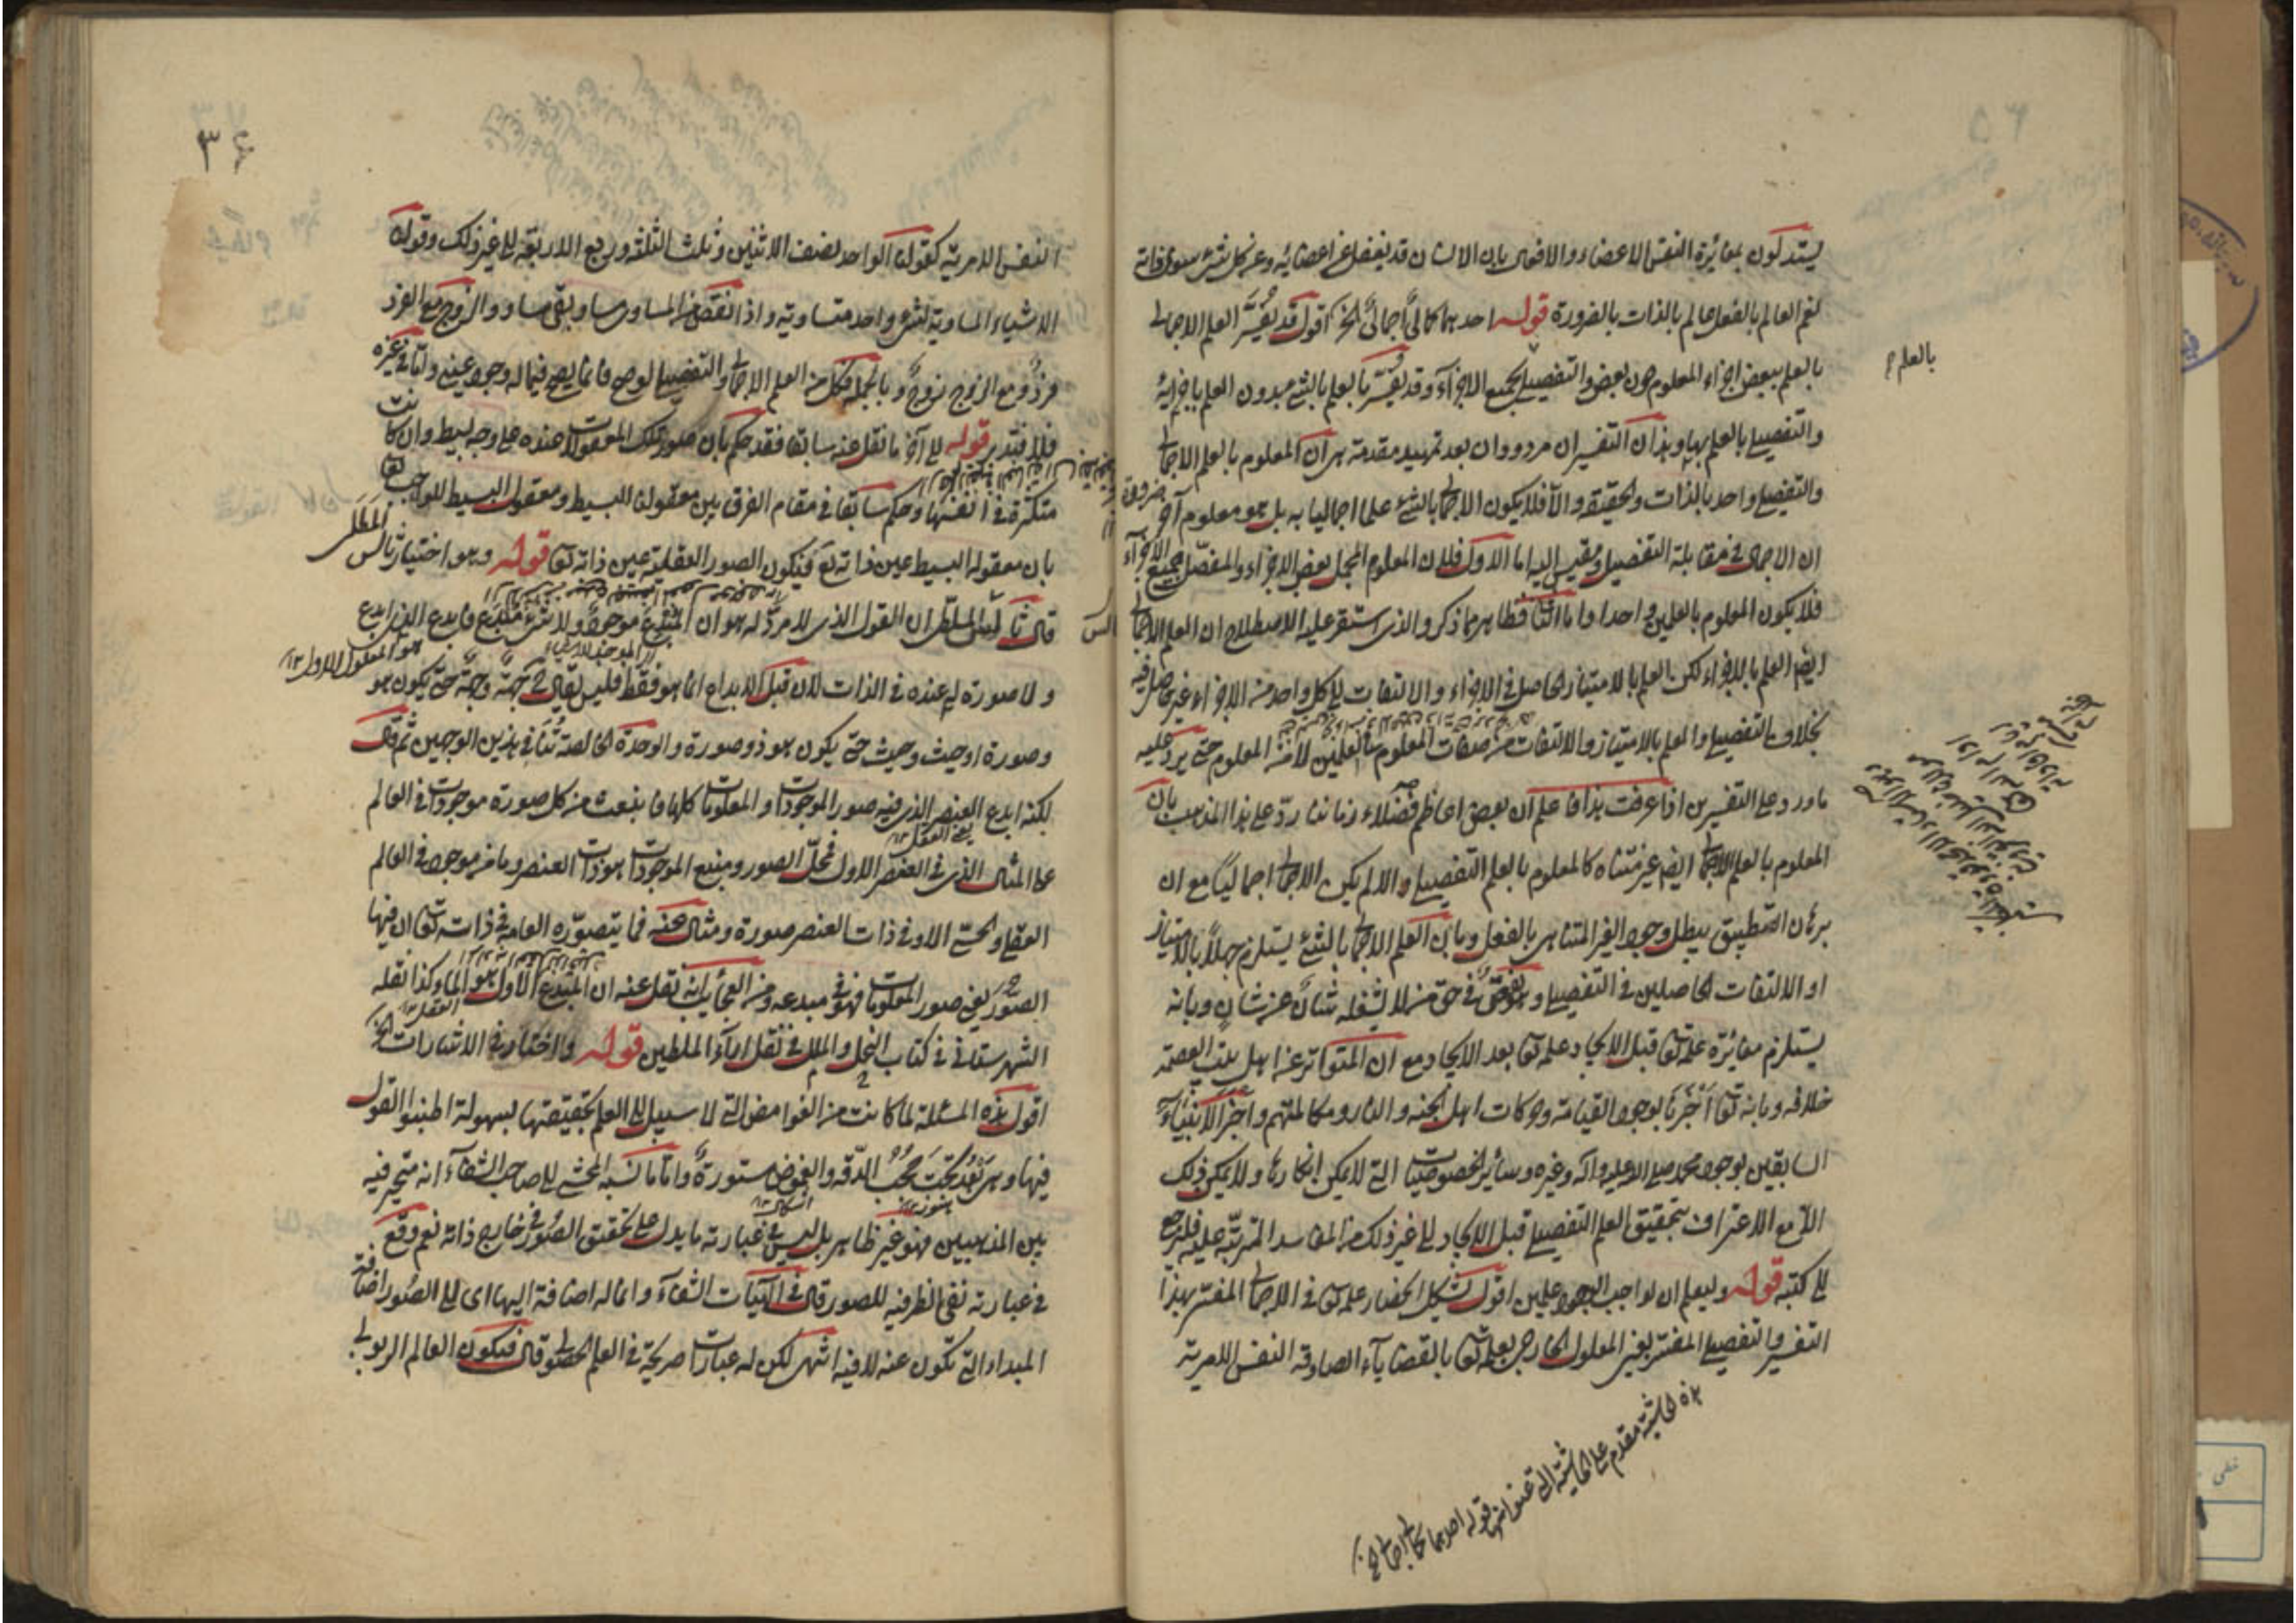 يستدلون بمغائرة النفس الاعضاء والافعال بان الانسان قد يغفل عن اعضائه وعن كل شيء سوى ذاته
نعم العالم بالفعل عالم بالذات بالضرورة قوله احدهما كمالي اجمالي الخ اقول قد يفسر العلم الاجمالي
بالعلم ببعض اجزاء المعلوم دون بعض والتفصيلي بجميع الاجزاء وقد يفسر بالعلم بالشيء بدون العلم باجزائه
بالعلم
والتفصيلي بالعلم بها وهذان التفسيران مردودان بعد تمهيد مقدمة هي ان المعلوم بالعلم الاجمالي
والتفصيلي واحد بالذات والحقيقة والا فلا يكون الاجمالي بالشيء علما اجماليا به بل هو معلوم آخر ضرورة
ان الاجمال في مقابلة التفصيل ومقيس اليه اما الاول فلان المعلوم المجمل بعض الاجزاء والمفصل جميع الاجزاء
فلا يكون المعلوم بالعلمين واحدا واما الثاني فظاهر مما ذكر والذي استقر عليه الاصطلاح ان العلم الاجمالي
ايضا العلم بالاجزاء لكن العلم بالامتياز الحاصل في الاجزاء والالتفات الى كل واحد من الاجزاء غير حاصل فيه
بخلاف التفصيلي والعلم بالامتياز والالتفات من صفات العلمين لا من المعلوم حتى يرد عليه
ما ورد على التفسيرين اذا عرفت هذا فاعلم ان بعض اعاظم فضلاء زماننا رد على هذا المذهب بان
المعلوم بالعلم الاجمالي ايضا غير متناه كالمعلوم بالعلم التفصيلي والا لم يكن الاجمالي اجماليا مع ان
برهان التطبيق يبطل وجود الغير المتناهي بالفعل وبان العلم الاجمالي بالشيء يستلزم جهلا بالامتياز
او الالتفات الحاصلين في التفصيلي وهو في حق من لا يشغله شان عن شان وبانه
يستلزم مغائرة علمه تعالى قبل الايجاد علمه تعالى بعد الايجاد مع ان المتواتر عن اهل بيت العصمة
خلافه وبانه تعالى اخبرنا بوجود القيامة وحركات اهل الجنة والنار ومكالمتهم واخبر الانبياء
السابقين بوجود محمد صلى الله عليه وآله وغيره وسائر الخصوصيات التي لا يمكن انكارها ولا يمكن ذلك
الا مع الاعتراف بتحقيق العلم التفصيلي قبل الايجاد الى غير ذلك من المفاسد المترتبة عليه فليرجع
الى كتبه قوله وليعلم ان لواجب الوجود علمين اقول يشكل انحصار علمه تعالى في الاجمالي المفسر بهذا
التفسير والتفصيلي المفسر بعين المعلول الخارجي بعلمه تعالى بالقضايا الصادقة النفس الامرية
هذه الحاشية مقدم على الحاشية التي عنوانها قوله احدهما كمالي اجمالي الخ
٣٦
النفس الامرية كقولنا الواحد نصف الاثنين وثلث الثلثة وربع الاربعة الى غير ذلك وقولنا
الاشياء المساوية لشيء واحد متساوية واذا نقص من المساوي مساو بقي مساو والزوج مع الفرد
فرد ومع الزوج زوج وبالجملة فكل من العلم الاجمالي والتفصيلي لو صح فانما يصح فيما له وجود عيني واما في غيره
فلا فتدبر قوله الى آخر ما نقل عنه سابقا فقد حكم بان صور تلك المعقولات عنده على وجه بسيط وان كانت
متكثرة في انفسها وحكم سابقا في مقام الفرق بين معقولنا البسيط ومعقول البسيط للواجب تعالى
بان معقوله البسيط عين ذاته تعالى فيكون الصور العقلية عين ذاته تعالى قوله وهو اختيار ثالس الملطي
قال ثاليس الملطي ان القول الذي لا مرد له هو ان المبدع موجود ولا شيء مبدع فابدع الذي ابدع
ولا صورة له عنده في الذات لان قبل الابداع انما هو فقط فليس يقال جهة وجهة حتى يكون هو
هو المعلول الاول
وصورة او حيث وحيث حتى يكون هو ذو صورة والوحدة الخالصة تنافي هذين الوجهين ثم قال
لكنه ابدع العنصر الذي فيه صور الموجودات والمعلومات كلها فانبعث من كل صورة موجودات في العالم
يعني العقل
على المثال الذي في العنصر الاول فمحل الصور ومنبع الموجودات هو ذات العنصر وما من موجود في العالم
العقلي والحسي الا وفي ذات العنصر صورة ومثال عنه فما يتصوره العامة في ذاته تعالى ان فيها
الصور يعني صور المعلومات فهو في مبدعه ومن العجائب انه نقل عنه ان المبدع الاول هو الماء وكذا نقله
الشهرستاني في كتاب النحل والملل في نقل آراء الملطيين قوله واختاره في الاشارات الخ
اقول هذه المسئلة لما كانت من الغوامض التي لا سبيل الى العلم بحقيقتها بسهولة اطنبوا القول
فيها وهي بعد تحت حجب الدقة والغموض مستورة واما ما نسبه المحشي الى صاحب الشفاء انه متحير فيه
بين المذهبين فهو غير ظاهر بل ليس في عبارته ما يدل على تحقق الصور في خارج ذاته نعم وقع
في عبارته نفي الظرفية للصور قال في الهيات الشفاء وانما له اضافة اليها اي الى الصور اضافة
المبداء التي تكون عنه لا فيه انتهى لكن له عبارات صريحة في العلم الحصولي قال فيكون العالم الربوبي